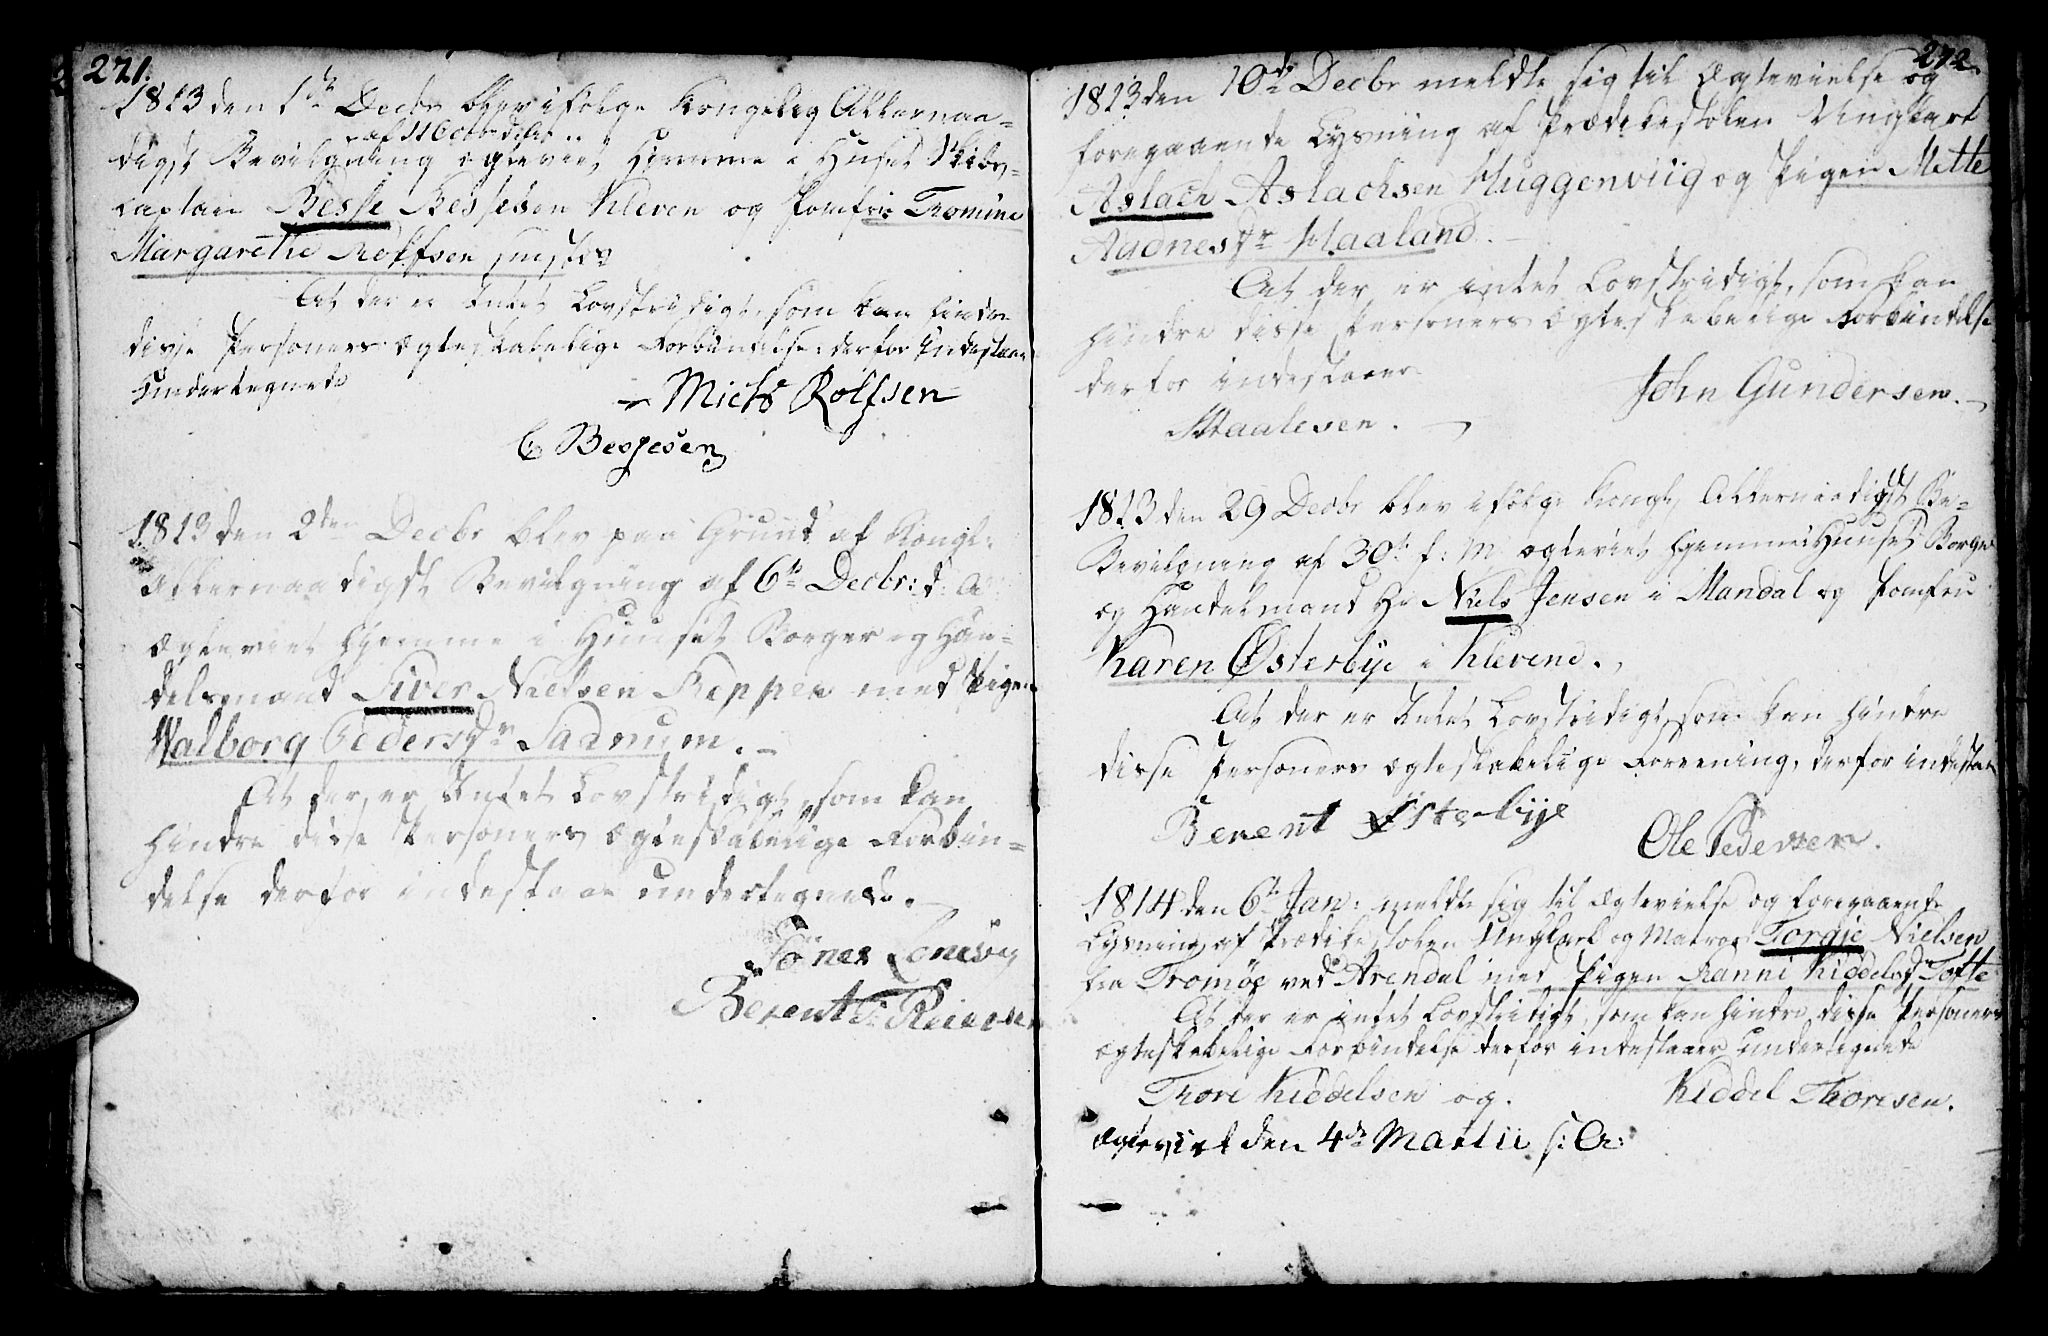 271.
1813 den 1ste Decbr blev ifølge Kongelig Allernaa-
af 11 Octob d: A:
digst Bevilgning ægteviet hjemme i Huset Skibs-
captain Besse Bessesen Kleven og Jomfru Tomine
Margarethe Rolfsen
At der er Intet Lovstridigt, som kan hindre
disse Personers ægteskabelige Forbindelse derfor Indestaae
Undertegnede
Mich Rolfsen
C Bessesen
1813 den 2den Decbr blev paa Grund af Kongl:
allernaadigst Bevilgning af 6te Decbr: d: A
ægteviet hjemme i Huuset Borger og Han-
delsmand Siver Nielsen Reppen med Pigen
Walborg Pedersdr Sadnum.
At der er Intet Lovstridigt, som kan
hindre disse Personers ægteskabelige Forbin-
delse derfor indestaae undertegnede.
Berent
272.
1813 den 10de Decbr meldte sig til Ægtevielse og
foregaaende Lysning af Prædikestolen Ungkarl
Aslach Aslachsen Huggenviig og Pigen Mette
Aadnesdr Haaland.
At der er intet Lovstridigt, som kan
hindre disse Personers Ægteskabelige Forbindelse
derfor indestaaer
John Gundersen.
Staalesen.
1813 den 29 Decbr blev ifølge Kongl. Allernaadigst Be-
vilgning af 30te f: M: ægteviet hjemme i Huuset Borger
og Handelsmand Hr Niels Jensen i Mandal og Jomfru
Karen Østerbye i Klevene.
At der er Intet Lovstridigt, som kan hindre
disse Personers ægteskabelige Foreening, derfor indestaae
Berent Østerbye
Ole Pedersen.
1814 den 6te Jan: meldte sig til Ægtevielse og foregaaende
Lysning af Prædikestolen Ungkarl og Matros Torgje Nielsen
fra Tromøe ved Arendal med Pigen Ranni Kiddelsdr Tofte
At der er intet Lovstridigt, som kan hindre disse Personers
ægteskabelige Forbindelse derfor indestaaer undertegnede
Thore Kiddelsen og.
Kiddel Thoresen.
Ægteviet den 4de Martii s: A: